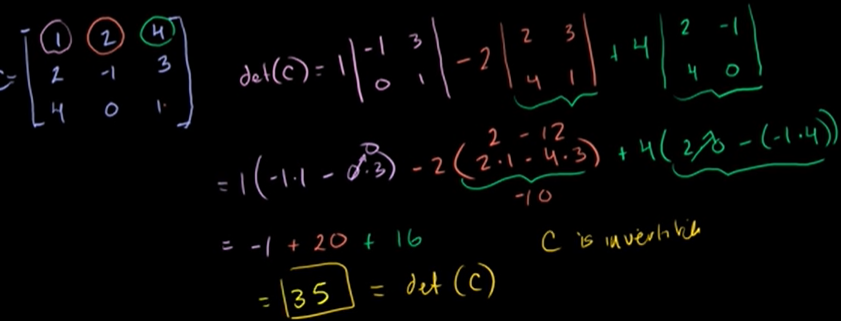 C = [1 2 4
2 -1 3
4 0 1]
det(C) = 1 |-1 3; 0 1| - 2 |2 3; 4 1| + 4 |2 -1; 4 0|
2 - 12
= 1(-1·1 - 0·3) - 2(2·1 - 4·3) + 4(2·0 - (-1·4))
0
-10
= -1 + 20 + 16
C is invertible
= 35 = det(C)